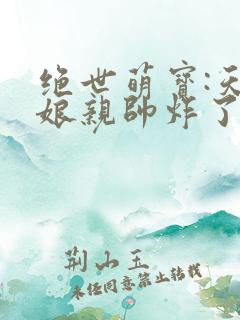 绝世萌寶:天
娘親帥炸了
荆山玉
未经同意禁止转载